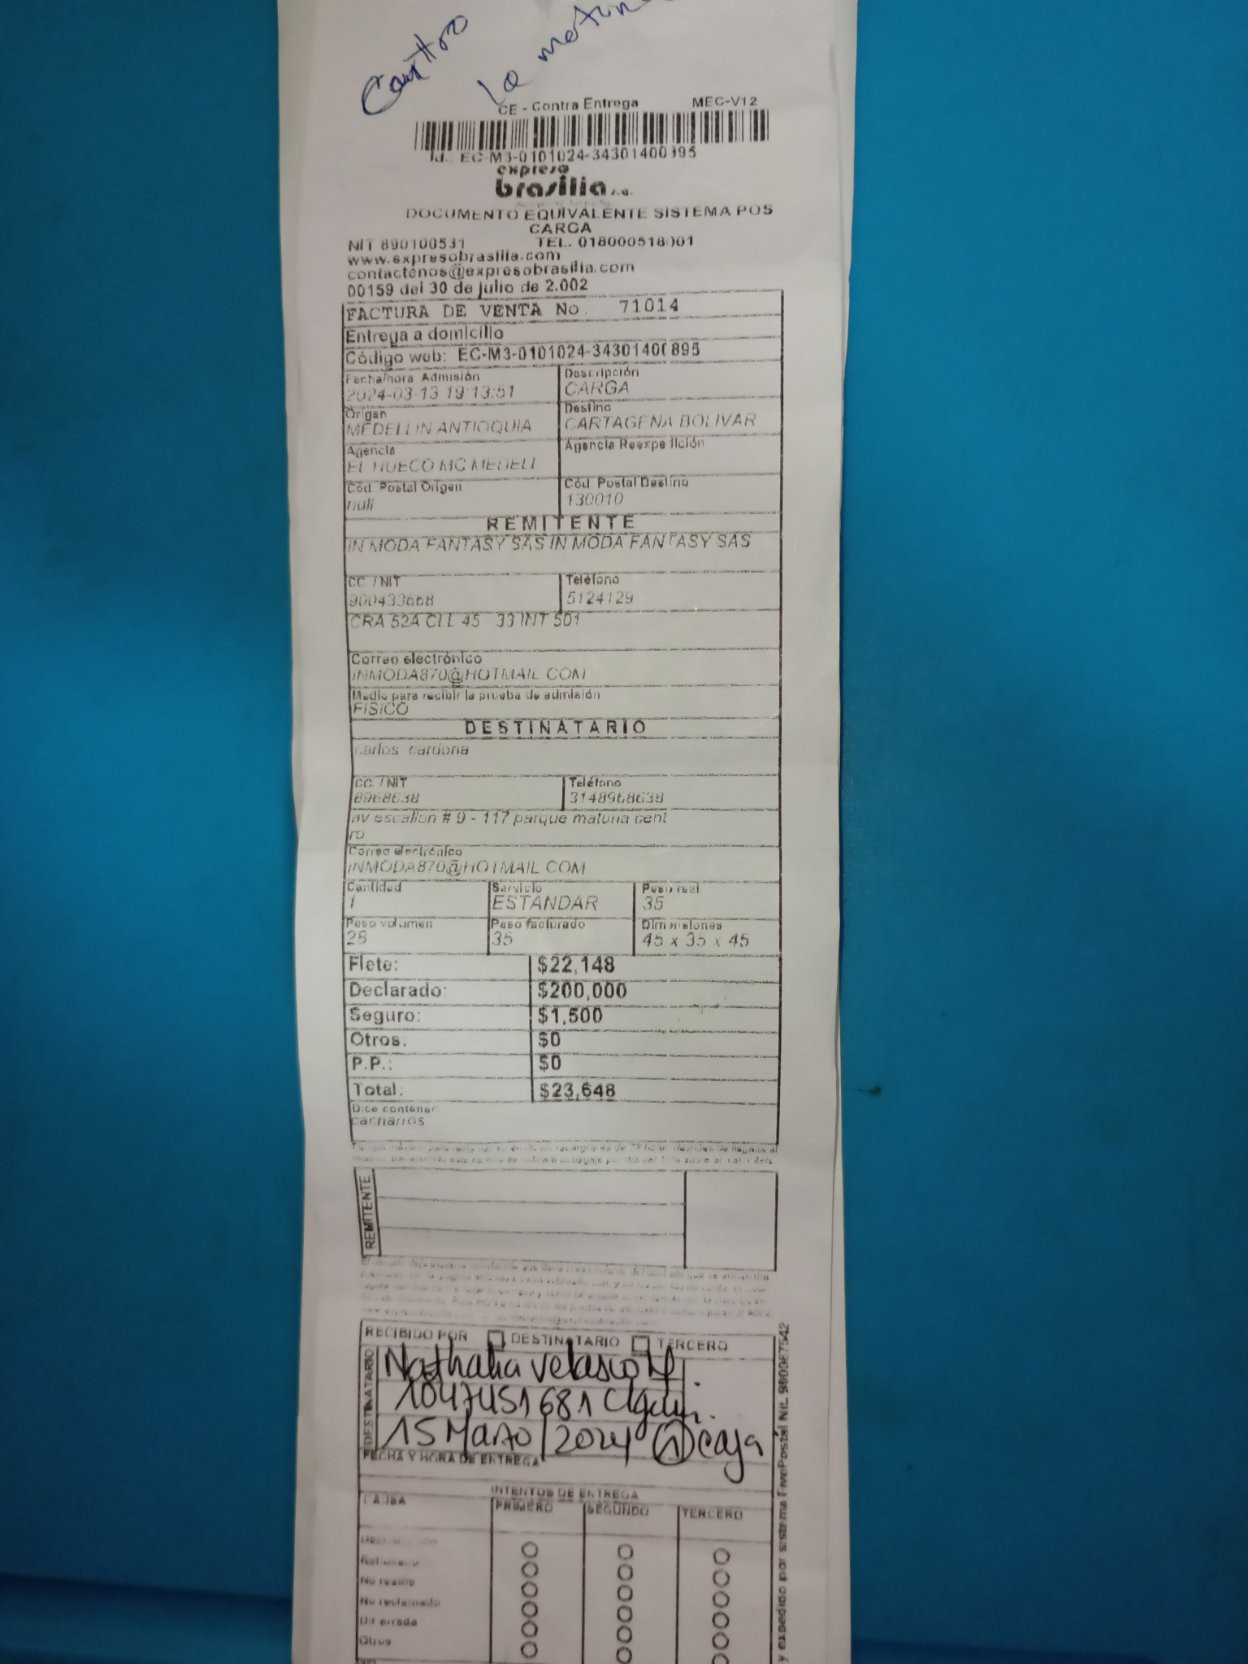 Centro
La matuna
CE - Contra Entrega MEC-V12
Id. EC-M3-0101024-34301400895
expreso
brasilia s.a.
DOCUMENTO EQUIVALENTE SISTEMA POS
CARGA
NIT 890100531 TEL. 018000518001
www.expresobrasilia.com
contactenos@expresobrasilia.com
00159 del 30 de julio de 2.002
FACTURA DE VENTA No. 71014
Entrega a domicilio
Código web: EC-M3-0101024-34301400895
Fecha/hora Admisión Descripción
2024-03-13 19:13:51 CARGA
Origen Destino
MEDELLIN ANTIOQUIA CARTAGENA BOLIVAR
Agencia Agencia Reexpedición
EL HUECO MC MEDELL
Cód. Postal Origen Cód. Postal Destino
null 130010
REMITENTE
IN MODA FANTASY SAS IN MODA FANTASY SAS
CC. / NIT Teléfono
900433668 5124129
CRA 52A CLL 45 - 33 INT 501
Correo electrónico
INMODA870@HOTMAIL.COM
Medio para recibir la prueba de admisión
FISICO
DESTINATARIO
carlos cardona
CC. / NIT Teléfono
8968638 3148968638
av escallon # 9 - 117 parque matuna cent
ro
Correo electrónico
INMODA870@HOTMAIL.COM
Cantidad Servicio Peso real
1 ESTANDAR 35
Peso volumen Peso facturado Dimensiones
25 35 45 x 35 x 45
Flete: $22,148
Declarado: $200,000
Seguro: $1,500
Otros: $0
P.P.: $0
Total: $23,648
Dice contener
cacharros
REMITENTE
RECIBIDO POR DESTINATARIO TERCERO
DESTINATARIO
Nathalia Velasco M.
1047451681 Cgena.
15 Marzo / 2024 (1) caja
FECHA Y HORA DE ENTREGA
INTENTOS DE ENTREGA
CAUSA PRIMERO SEGUNDO TERCERO
Rehusado
No reside
No reclamado
Dir errada
Otros
y expedido por sistema FivePostal Nit. 900087542